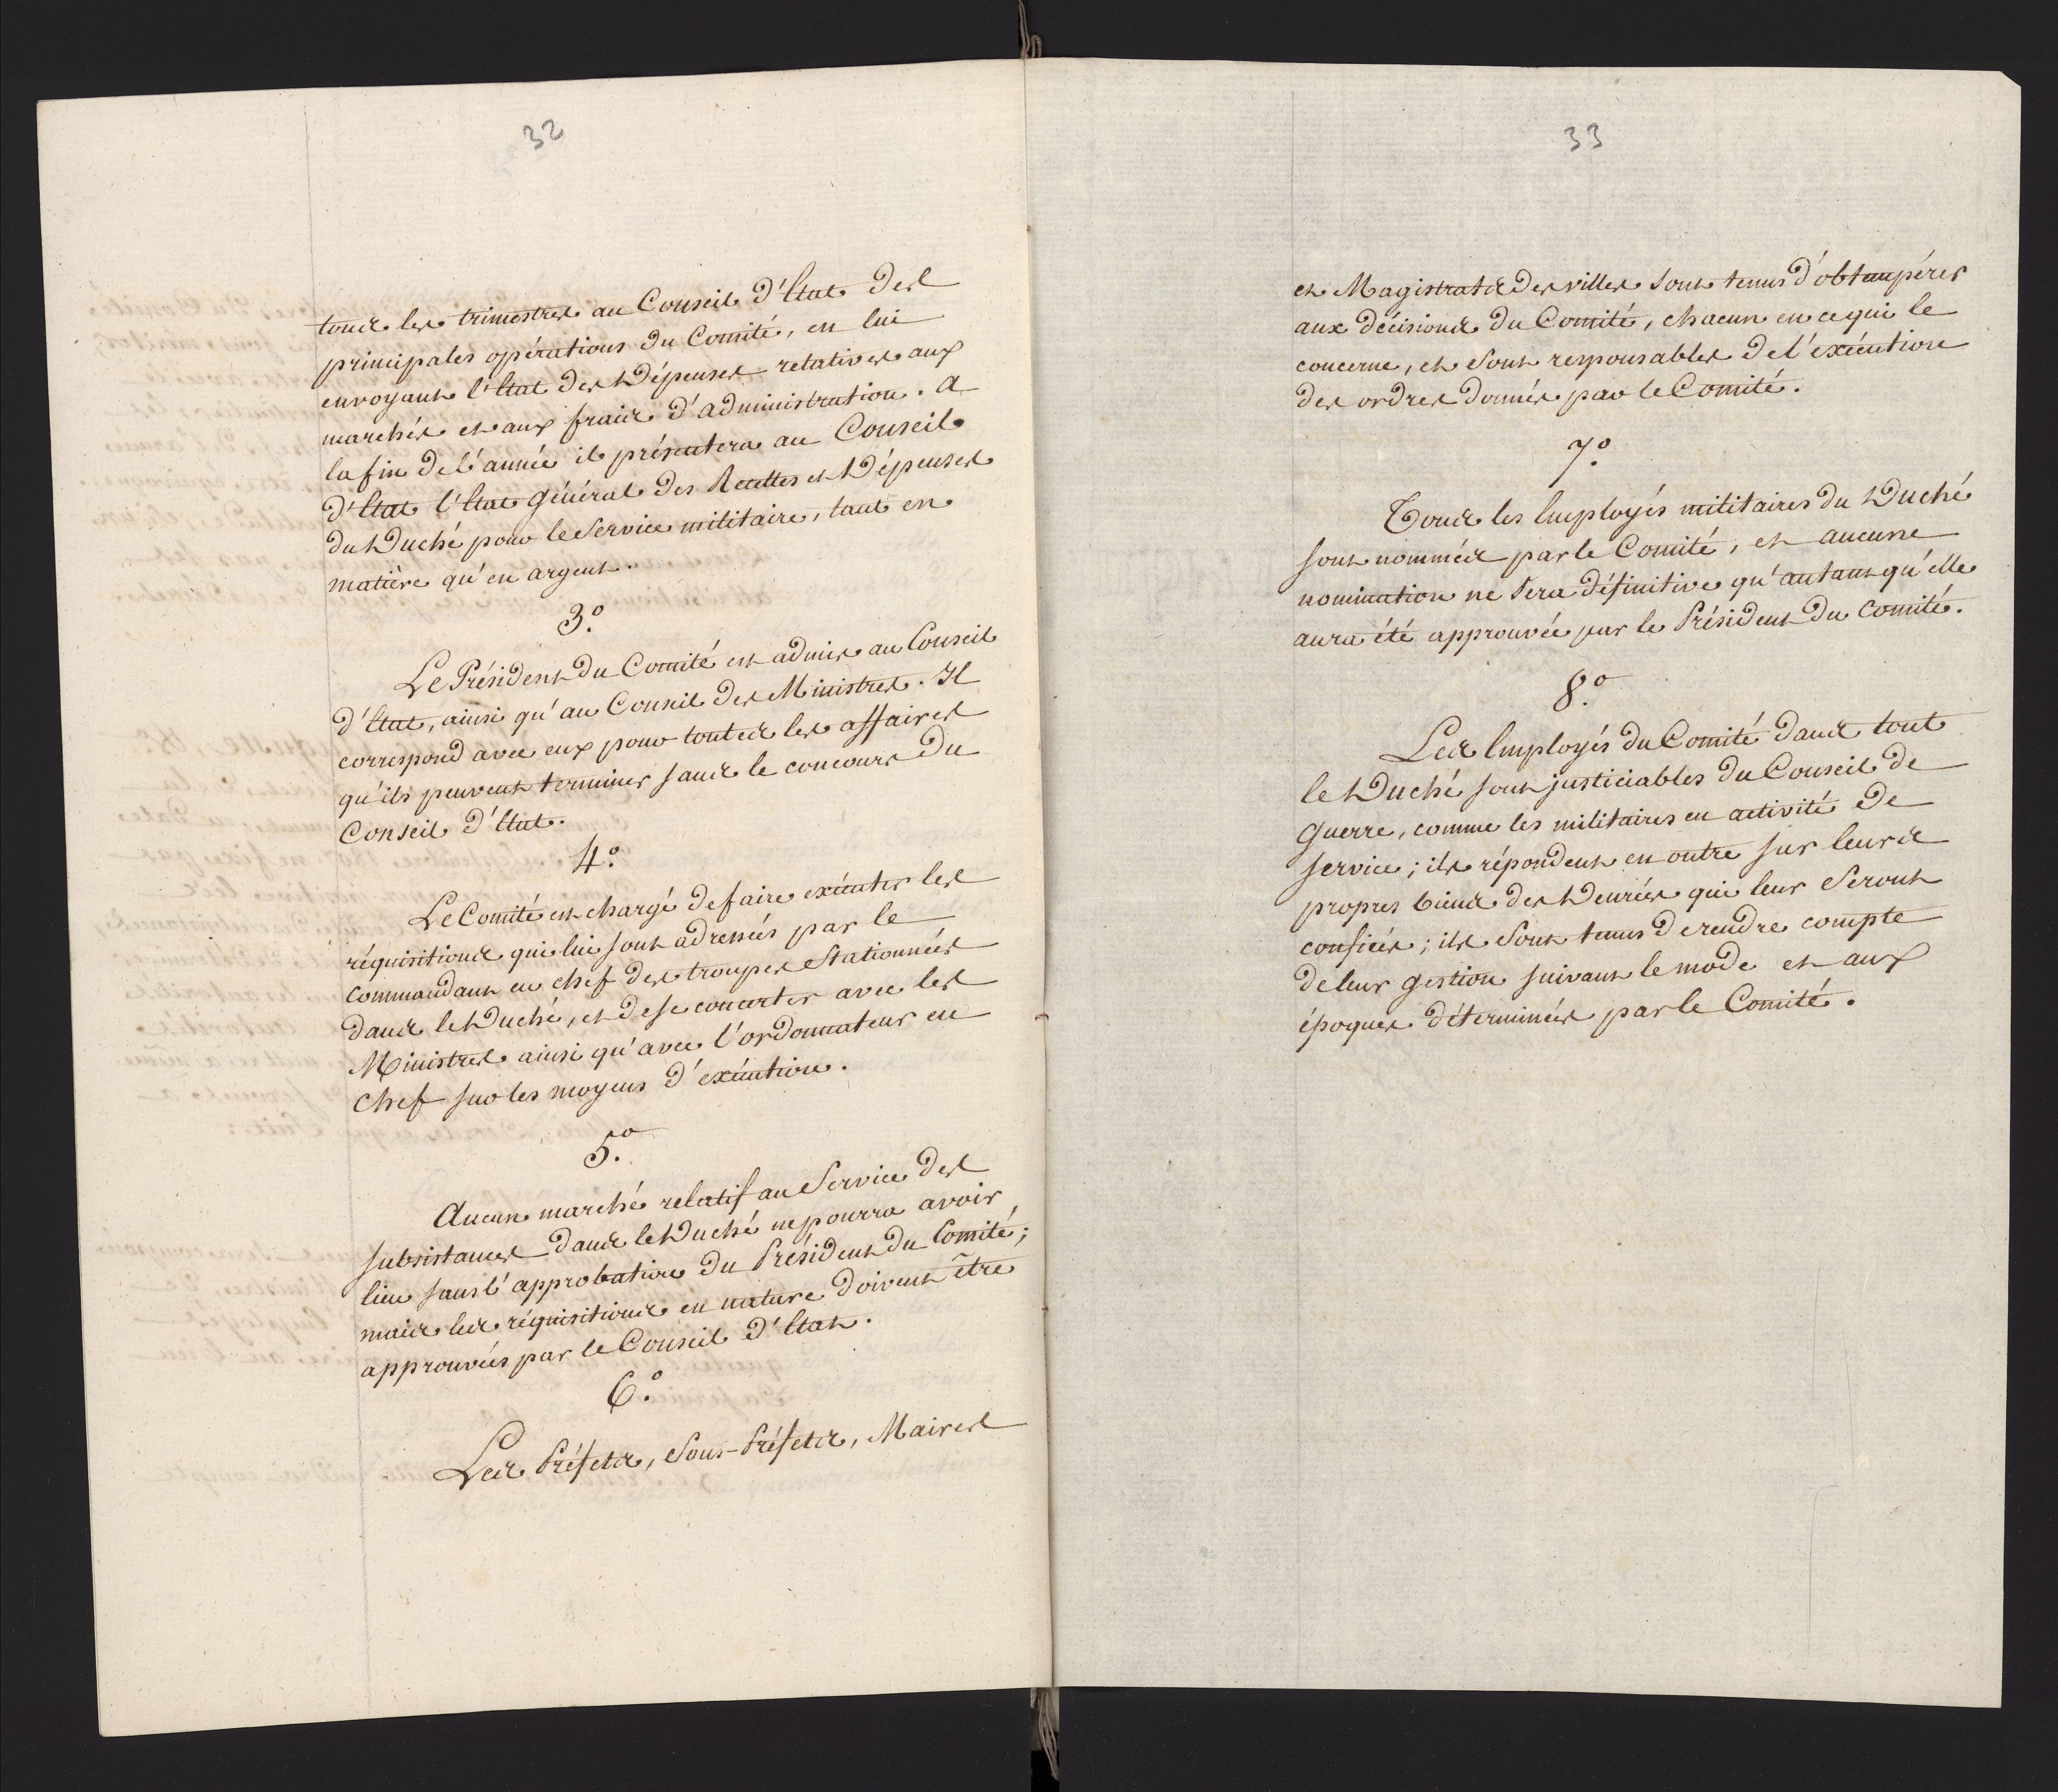 32
tous les trimestres au Conseil d'Etat des
principales opérations du Comité, en lui
envoyant l'Etat des Dépenses relatives aux
marchés et aux frais d'administration. a
la fin de l'année il présentera au Conseil
d'Etat l'Etat général des Recettes et Dépenses
du Duché pour le Service militaire, tant en
matière qu'en argent.
3.º
Le Président du Comité est admis au Conseil
d'Etat, ainsi qu'au Conseil des Ministres. Il
correspond avec eux pour toutes les affaires
qu'ils peuvent terminer sans le concours du
Conseil d'Etat.
4.º
Le Comité est chargé de faire exécuter les
réquisitions qui lui sont adressées par le
Commandant en chef des troupes Stationnées
dans le Duché, et de se concerter avec les
Ministres ainsi qu'avec l'ordonnateur en
chef sur les moyens d'exécution.
5.º
Aucun marché relatif au Service des
subsistances dans le Duché ne pourra avoir
lieu sans l'approbation du Président du Comité;
mais les réquisitions en nature doivent être
approuvées par le Conseil d'Etat.
6.º
Les Préfets, Sous-Préfets, Maires
33
et Magistrats des villes sont tenus d'obtempérer
aux décisions du Comité, chacun en ce qui le
concerne, et sont responsables de l'exécution
des ordres donnés par le Comité.
7.º
Tous les Employés militaires du Duché
sont nommés par le Comité, et aucune
nomination ne sera définitive qu'autant qu'elle
aura été approuvée par le Président du Comité.
8.º
Les Employés du Comité dans tout
le Duché sont justiciables du Conseil de
Guerre, comme les militaires en activité de
service; ils répondent en outre sur leurs
propres biens des Denrées qui leur seront
confiées; ils sont tenus de rendre compte
de leur gestion suivant le mode et aux
époques déterminées par le Comité.